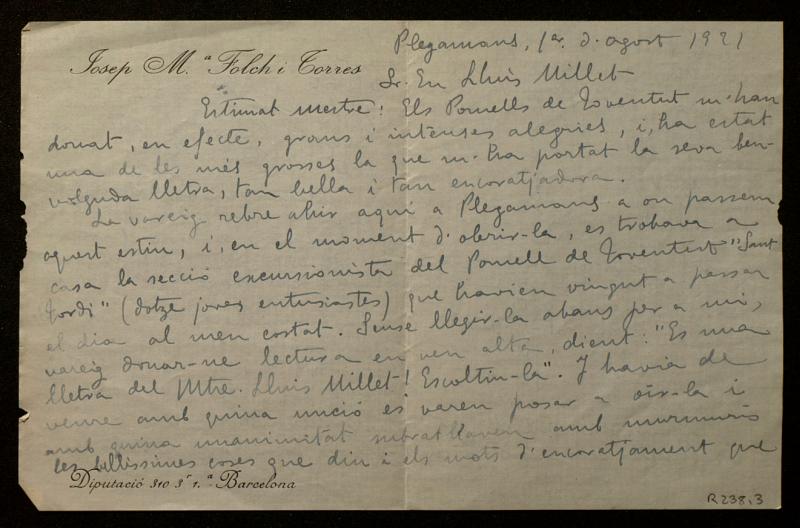 Josep M.ª Folch i Torres
Plegamans, 1er. d'agost 1921
Sr. En Lluis Millet
Estimat mestre: Els Pomells de Joventut m'han
donat, en efecte, grans i intenses alegries, i, ha estat
una de les més grosses la que m'ha portat la seva ben-
volguda lletra, tan bella i tan encoratjadora.
La vareig rebre ahir aquí a Plegamans a on passem
aquest estiu, i, en el moment d'obrir-la, es trobava a
casa la secció excursionista del Pomell de Joventut "Sant
Jordi" (dotze joves entusiastes) que havien vingut a passar
el dia al meu costat. Sense llegir-la abans per a mi,
vareig donar-ne lectura en veu alta, dient: "Es una
lletra del Mtre. Lluis Millet! Escoltin-la". I havia de
veure amb quina unció es varen posar a oír-la i
amb quina unanimitat subratllaven amb murmuris
les bellíssimes coses que diu i els mots d'encoratjament que
Diputació 310 3r 1.ª Barcelona
R238.3